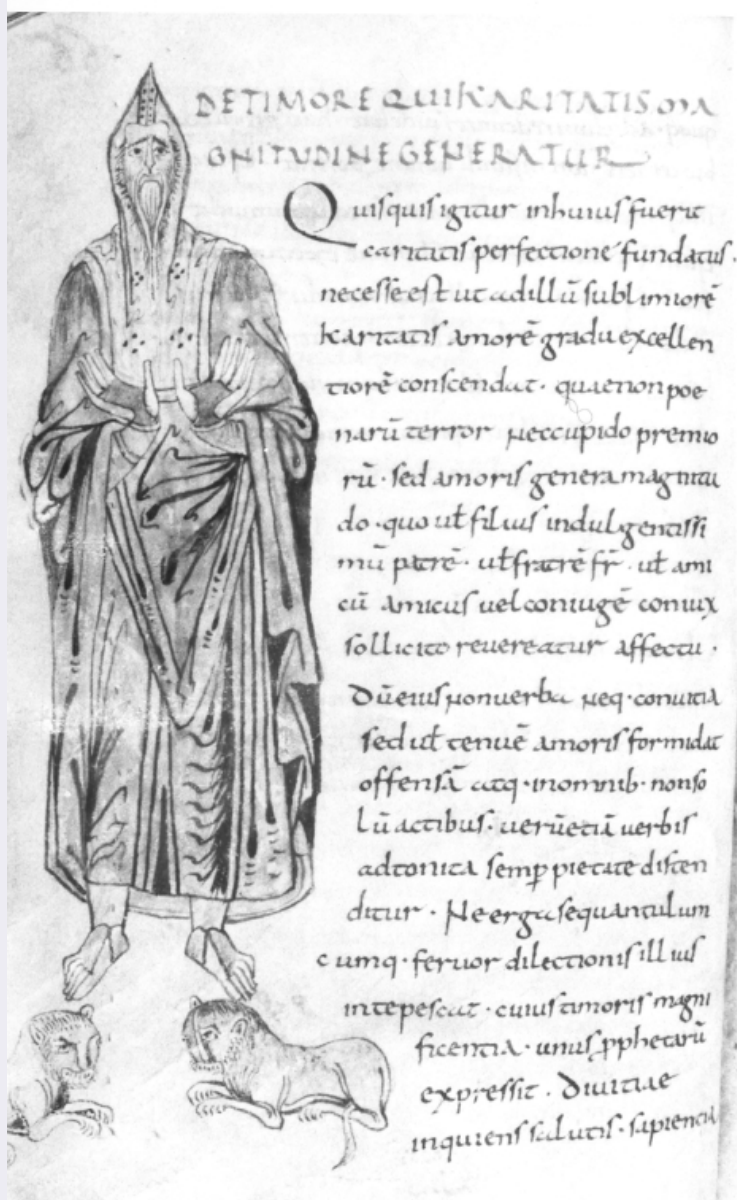 DE TIMORE QUI KARITATIS MA
GNITUDINE GENERATUR
Quisquis igitur in huius fuerit
caritatis perfectione fundatus.
necesse est ut ad illū sublimiorē
karitatis amorē gradu excellen
tiorē conscendat · quae non poe
narū terror nec cupido premio
rū · sed amoris generat magnitu
do · quo ut̄ filius indulgentissi
mū patrē · ut̄ fratrē fr̄ · ut̄ ami
cū amicus uel coniugē coniux
sollicito reuereatur affectu ·
Dū eius non uerba neq · conuitia
sed ut̄ tenuē amoris formidat
offensā atq · in omnib · non so
lū actibus · uerū etiā uerbis
adtonita semp̄ pietate disten
ditur · Ne erga se quantulum
cumq · feruor dilectionis illius
intepescat · cuius timoris magni
ficentia · unus p̄phetarū
expressit · Diuitiae
inquiens salutis · sapientia